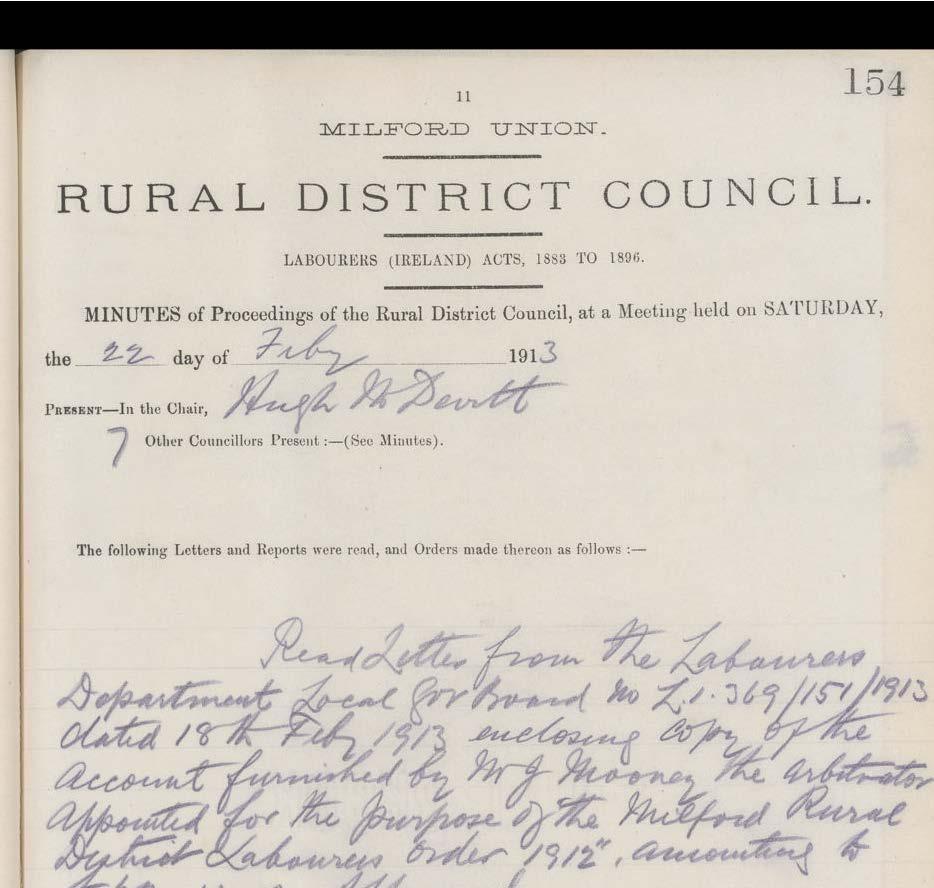 154
11
MILFORD UNION.
RURAL DISTRICT COUNCIL.
LABOURERS (IRELAND) ACTS, 1883 TO 1896.
MINUTES of Proceedings of the Rural District Council, at a Meeting held on SATURDAY,
the 22 day of Feby 1913
PRESENT—In the Chair, Hugh McDevitt
7 Other Councillors Present :—(See Minutes).
The following Letters and Reports were read, and Orders made thereon as follows :—
Read Letter from the Labourers
Department Local Gov Board No L.1.369/151/1913
dated 18th Feby 1913 enclosing copy of the
account furnished by Mr J Mooney the arbitrator
appointed for the purpose of the Milford Rural
District Labourers Order 1912", amounting to